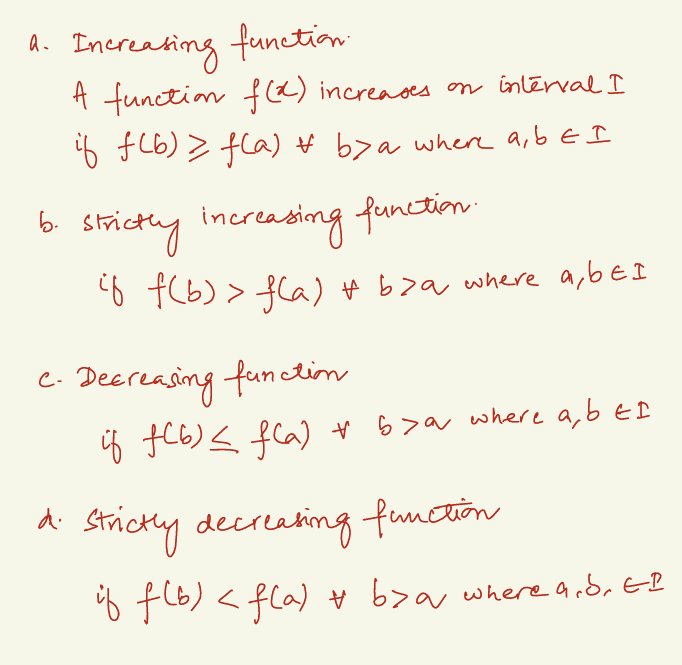 a. Increasing function.
A function f(x) increases on interval I
if f(b) ≥ f(a) ∀ b>a where a,b ∈ I
b. strictly increasing function.
if f(b) > f(a) ∀ b>a where a,b ∈ I
c. Decreasing function
if f(b) ≤ f(a) ∀ b>a where a,b ∈ I
d. strictly decreasing function
if f(b) < f(a) ∀ b>a where a,b, ∈ I